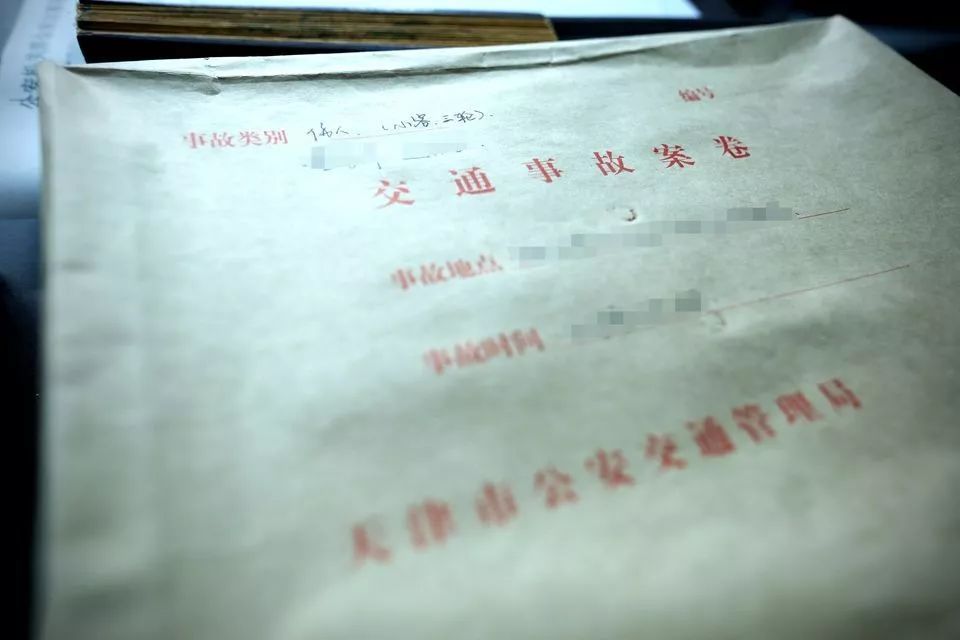 编号
事故类别 伤人.(小客.三轮).
交通事故案卷
事故地点
事故时间
天津市公安交通管理局